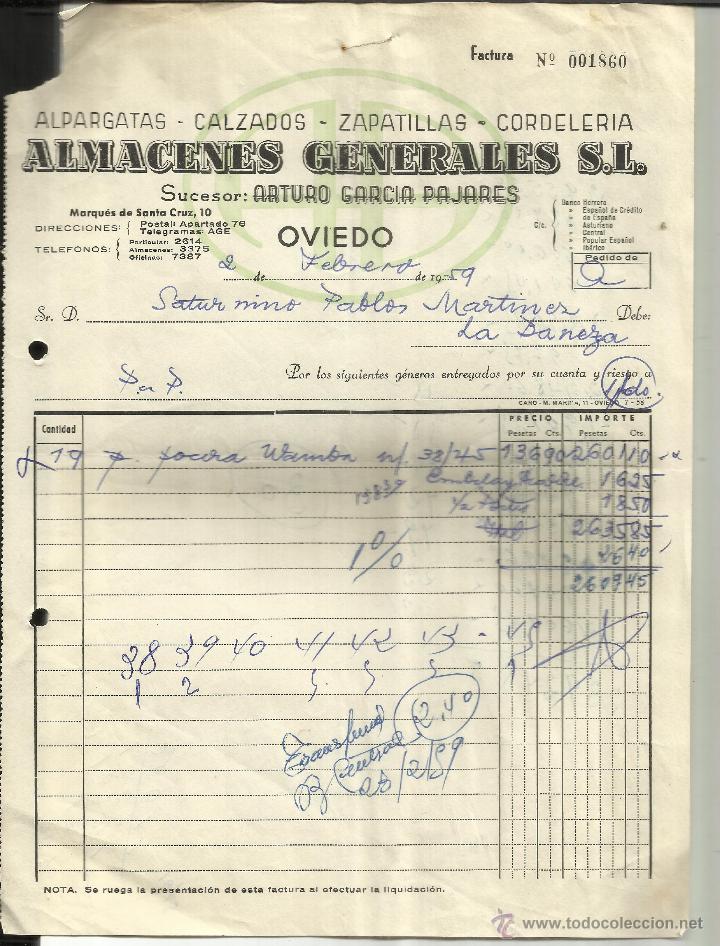 Factura Nº 001860
ALPARGATAS - CALZADOS - ZAPATILLAS - CORDELERIA
ALMACENES GENERALES S.L.
Sucesor: ARTURO GARCIA PAJARES
Marqués de Santa Cruz, 10
DIRECCIONES: Postal: Apartado 76
Telegramas: AGE
TELEFONOS: Particular: 2614
Almacenes: 3375
Oficina: 7387
OVIEDO
C/c. Banco Herrero
» Español de Crédito
» de España
» Asturiano
» Central
» Popular Español
» Ibérico
Pedido de
2 de Febrero de 1959
Sr. D. Saturnino Pablos Martinez Debe:
La Bañeza
Por los siguientes géneros entregados por su cuenta y riesgo a
P. a P.
CAÑO - M. MARINA, 11 - OVIEDO 7 - 58
Cantidad PRECIO IMPORTE
Pesetas Cts. Pesetas Cts.
19 p. Wamba n/ 38/45 136 90 2601 10
16 25
1/2 Portes 18 50
Total 2635 85
1% 26 40
2609 45
38 39 40 41 42 43 - 45
1 2 5 5 5 1
2,40
Central
28/2/59
NOTA. Se ruega la presentación de esta factura al efectuar la liquidación.
www.todocoleccion.net